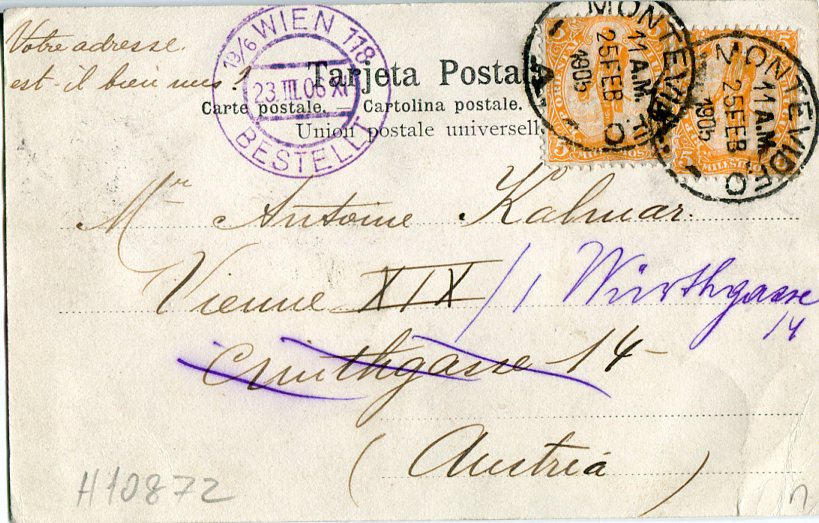 Votre adresse
est-il bien mis?
19/6 WIEN 118
23.III.05
BESTELLT
Tarjeta Postal
Carte postale. — Cartolina postale.
Union postale universell
MONTEVIDEO
11 A.M.
25 FEB
1905
MONTEVIDEO
11 A.M.
25 FEB
1905
5 MILESIMOS
5 MILESIM
Mr Antoine Kalmar.
Vienne XIX/1 Würthgasse
14
14
(Austria)
H10872